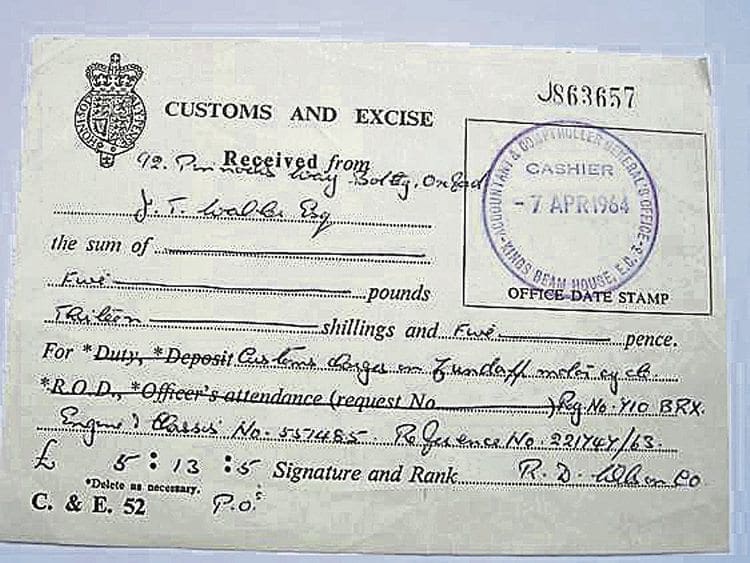 JS63657
CUSTOMS AND EXCISE
ACCOUNTANT & COMPTROLLER GENERAL'S OFFICE
CASHIER
- 7 APR 1964
KINGS BEAM HOUSE, E.C.3
OFFICE DATE STAMP
Received from
92. Way Botley, Oxford
J. T. Esq
the sum of
Five pounds
Thirteen shillings and Five pence.
For *Duty, *Deposit Customs charges on Zundapp motor cycle.
*R.O.D., *Officer's attendance (request No. ) Reg No. Y10 BRX.
Engine & Chassis No. 551485. Reference No. 221747/63.
£ 5 : 13 : 5 Signature and Rank R. D. PO
*Delete as necessary.
C. & E. 52 P.O's